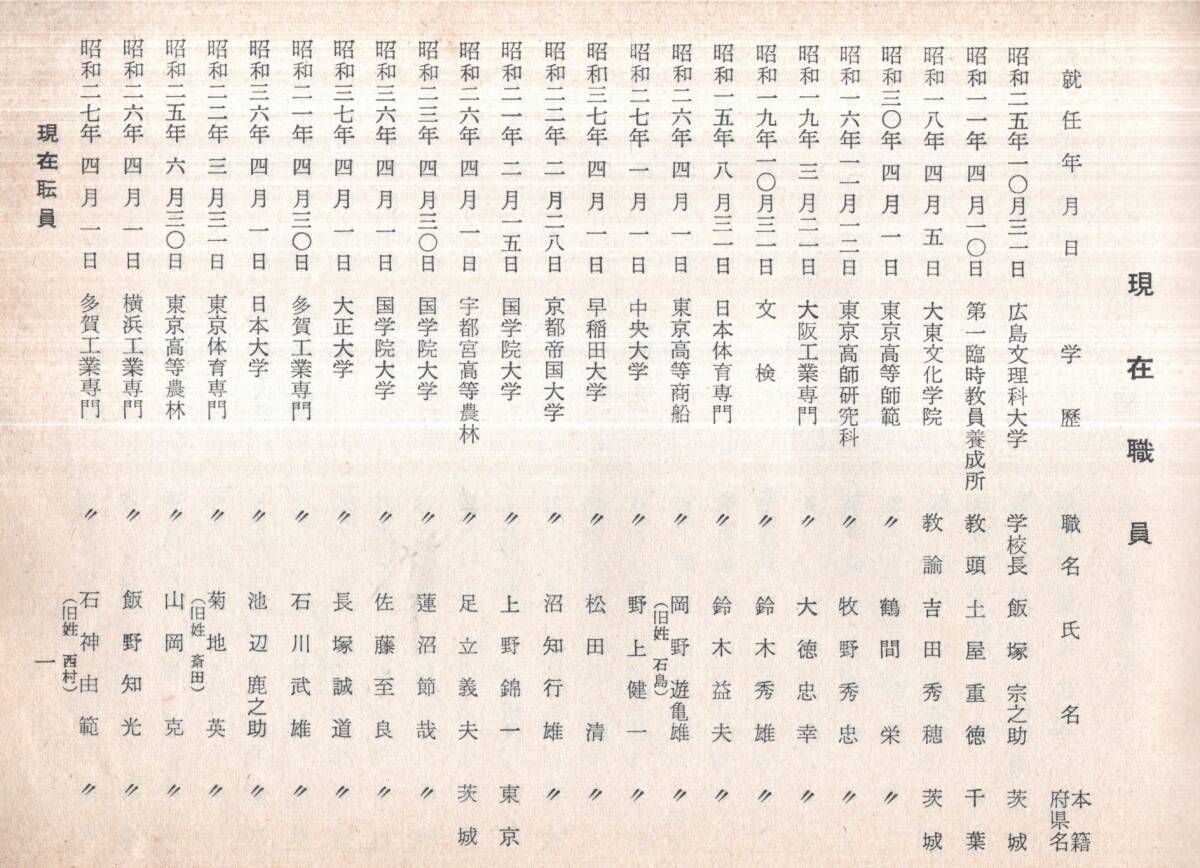 現在職員
就任年月日 学歴 職名 氏名 本籍府県名
昭和二五年一〇月三一日 広島文理科大学 学校長 飯塚宗之助 茨城
昭和一一年四月一〇日 第一臨時教員養成所 教頭 土屋重徳 千葉
昭和一八年四月五日 大東文化学院 教諭 吉田秀穂 茨城
昭和三〇年四月一日 東京高等師範 〃 鶴間栄 〃
昭和一六年一二月一二日 東京高師研究科 〃 牧野秀忠 〃
昭和一九年三月二二日 大阪工業専門 〃 大徳忠幸 〃
昭和一九年一〇月三一日 文検 〃 鈴木秀雄 〃
昭和一五年八月三一日 日本体育専門 〃 鈴木益夫 〃
昭和二六年四月一日 東京高等商船 〃 岡野遊亀雄 〃
(旧姓 石島)
昭和二七年一月一日 中央大学 〃 野上健一 〃
昭和三七年四月一日 早稲田大学 〃 松田清 〃
昭和二二年二月二八日 京都帝国大学 〃 沼知行雄 〃
昭和二一年二月一五日 国学院大学 〃 上野錦一 東京
昭和二六年四月一日 宇都宮高等農林 〃 足立義夫 茨城
昭和二三年四月三〇日 国学院大学 〃 蓮沼節哉 〃
昭和三六年四月一日 国学院大学 〃 佐藤至良 〃
昭和三七年四月一日 大正大学 〃 長塚誠道 〃
昭和二一年四月三〇日 多賀工業専門 〃 石川武雄 〃
昭和三六年四月一日 日本大学 〃 池辺鹿之助 〃
昭和二二年三月三一日 東京体育専門 〃 菊地英 〃
(旧姓 斎田)
昭和二五年六月三〇日 東京高等農林 〃 山岡克 〃
昭和二六年四月一日 横浜工業専門 〃 飯野知光 〃
昭和二七年四月一日 多賀工業専門 〃 石神由範 〃
(旧姓 西村)
現在転員
一